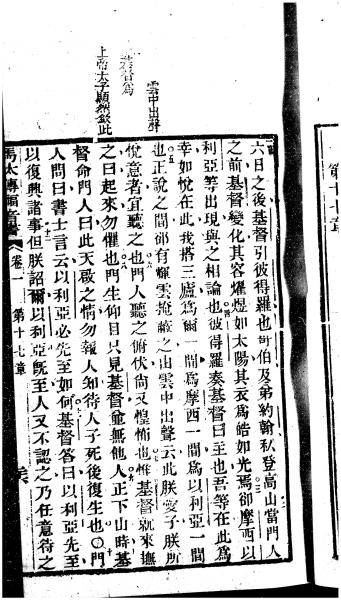 雲中出聲
基督為
上帝太子顯然欽此
六日之後基督引彼得羅也哥伯及弟約翰秘登高山當門人
之前基督變化其容燿煜如太陽其衣為皓如光焉卻摩西以
利亞等出現與之相論也彼得羅奏基督曰主也吾等在此為
幸如悅在此我搭三廬爲爾一間爲摩西一間爲以利亞一間
也正說之間卻有輝雲掩蔽之由雲中出聲云此朕愛子朕所
悅意者宜聽之也門人聽之俯伏尚又惶怖也惟基督就來撫
之曰起來勿懼也門生仰目只見基督並無他人正下山時基
督命門人曰此天啟之情勿報人知待人子死後復生也○門
人問曰書士言云以利亞必先至如何基督答曰以利亞先至
以復興諸事但朕詔爾以利亞既至人又不認之乃任意待之
馬太傳福音書 卷一 第十七章